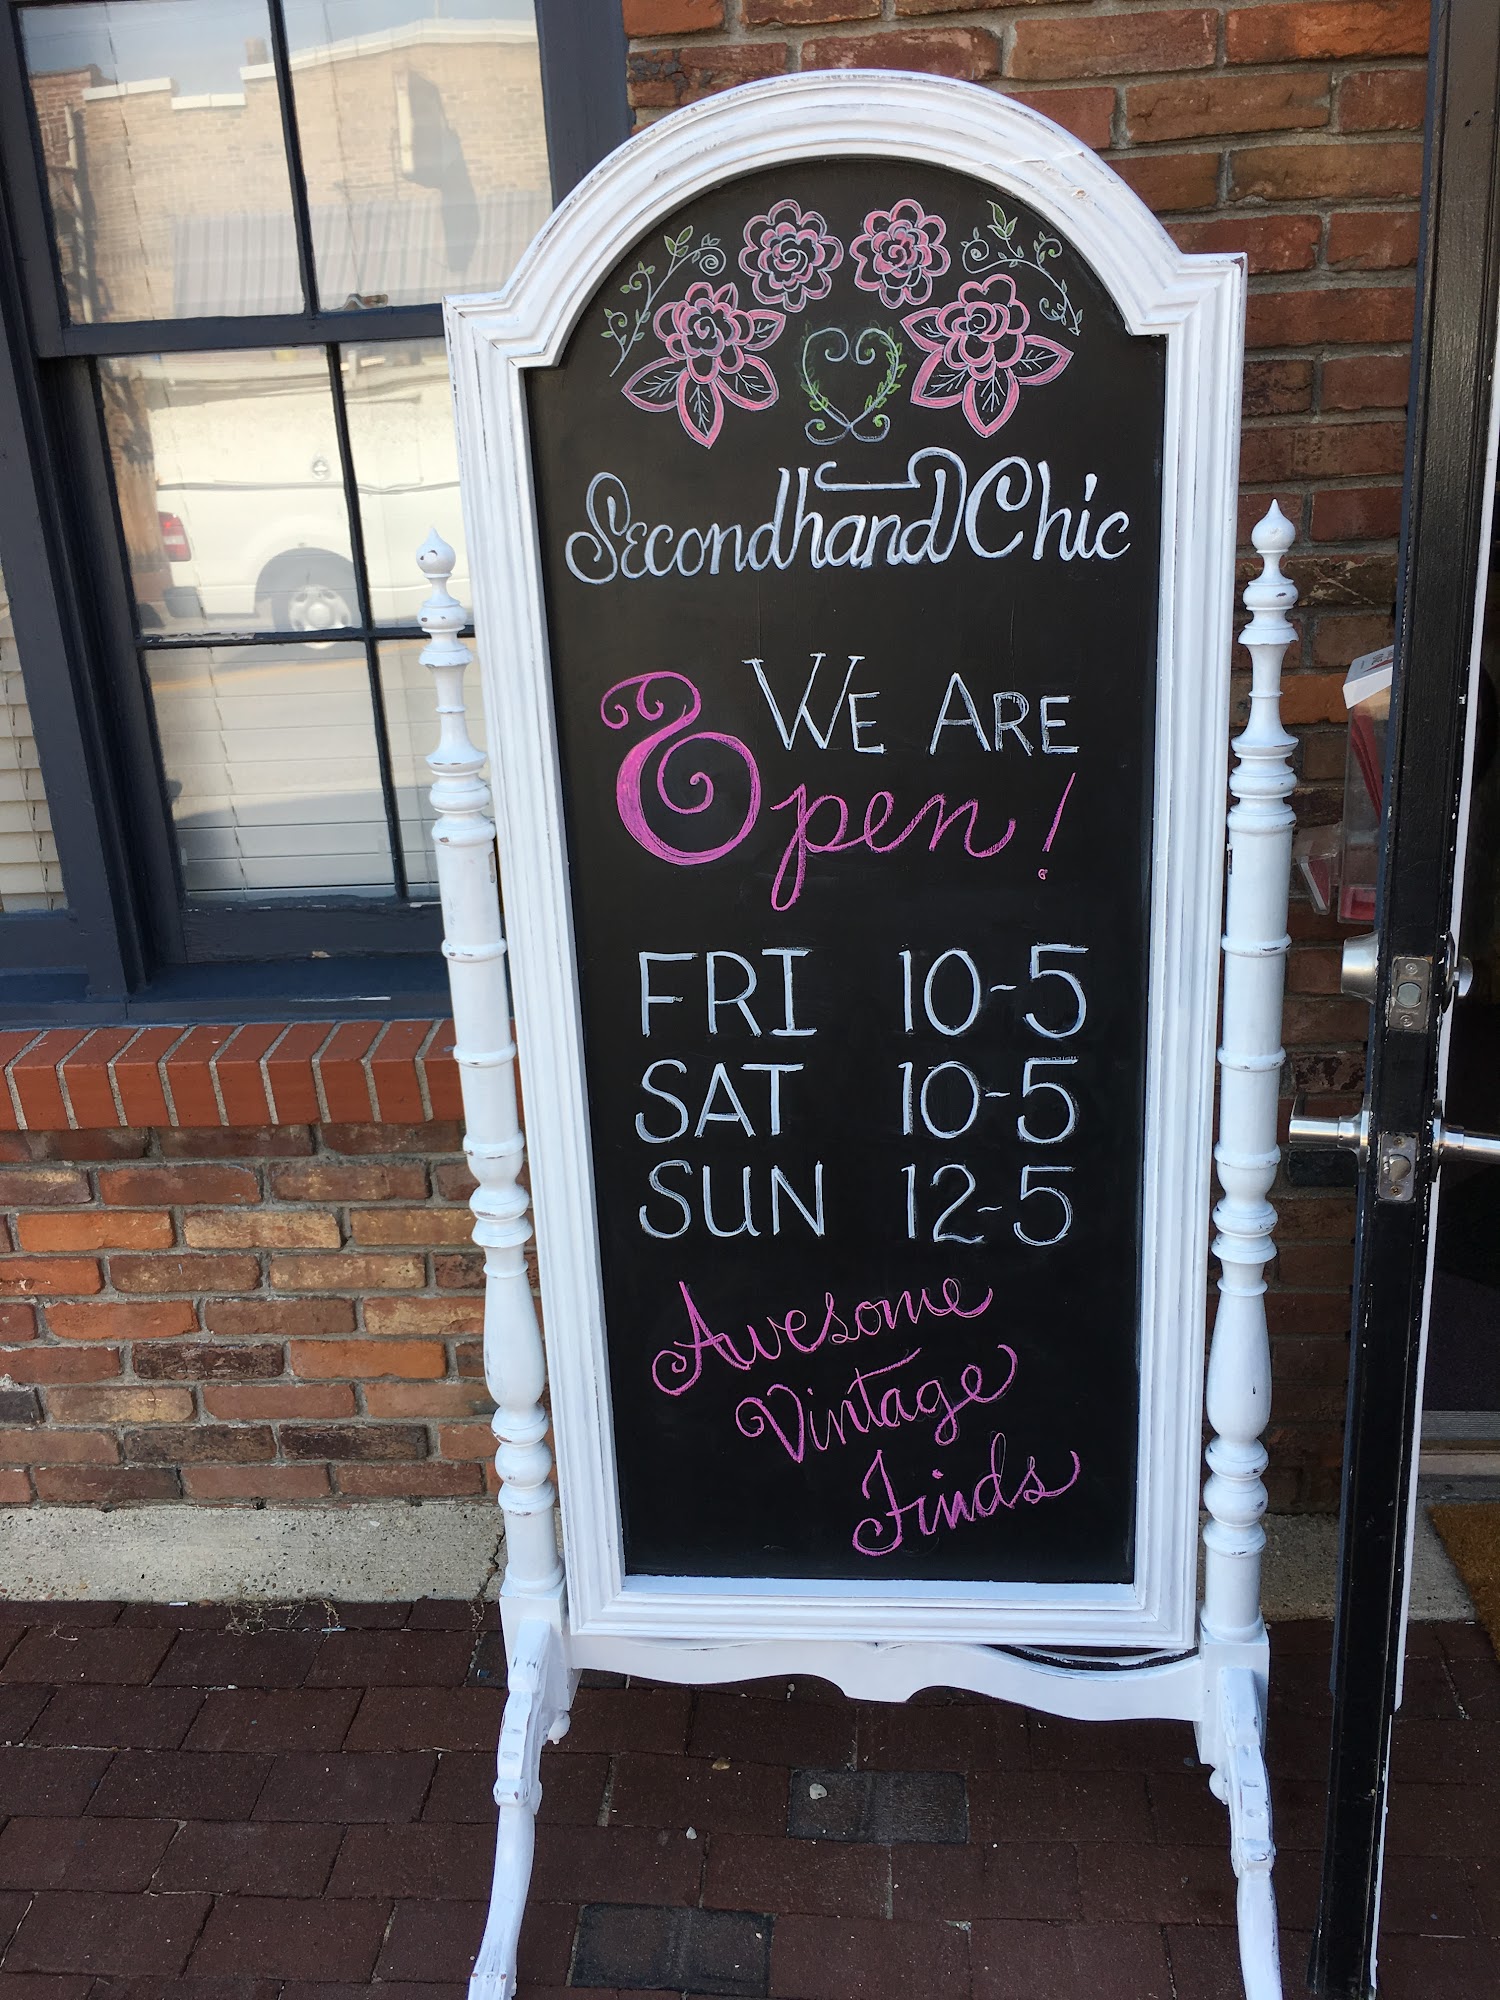 Secondhand Chic
WE ARE
Open!
FRI 10-5
SAT 10-5
SUN 12-5
Awesome
Vintage
Finds